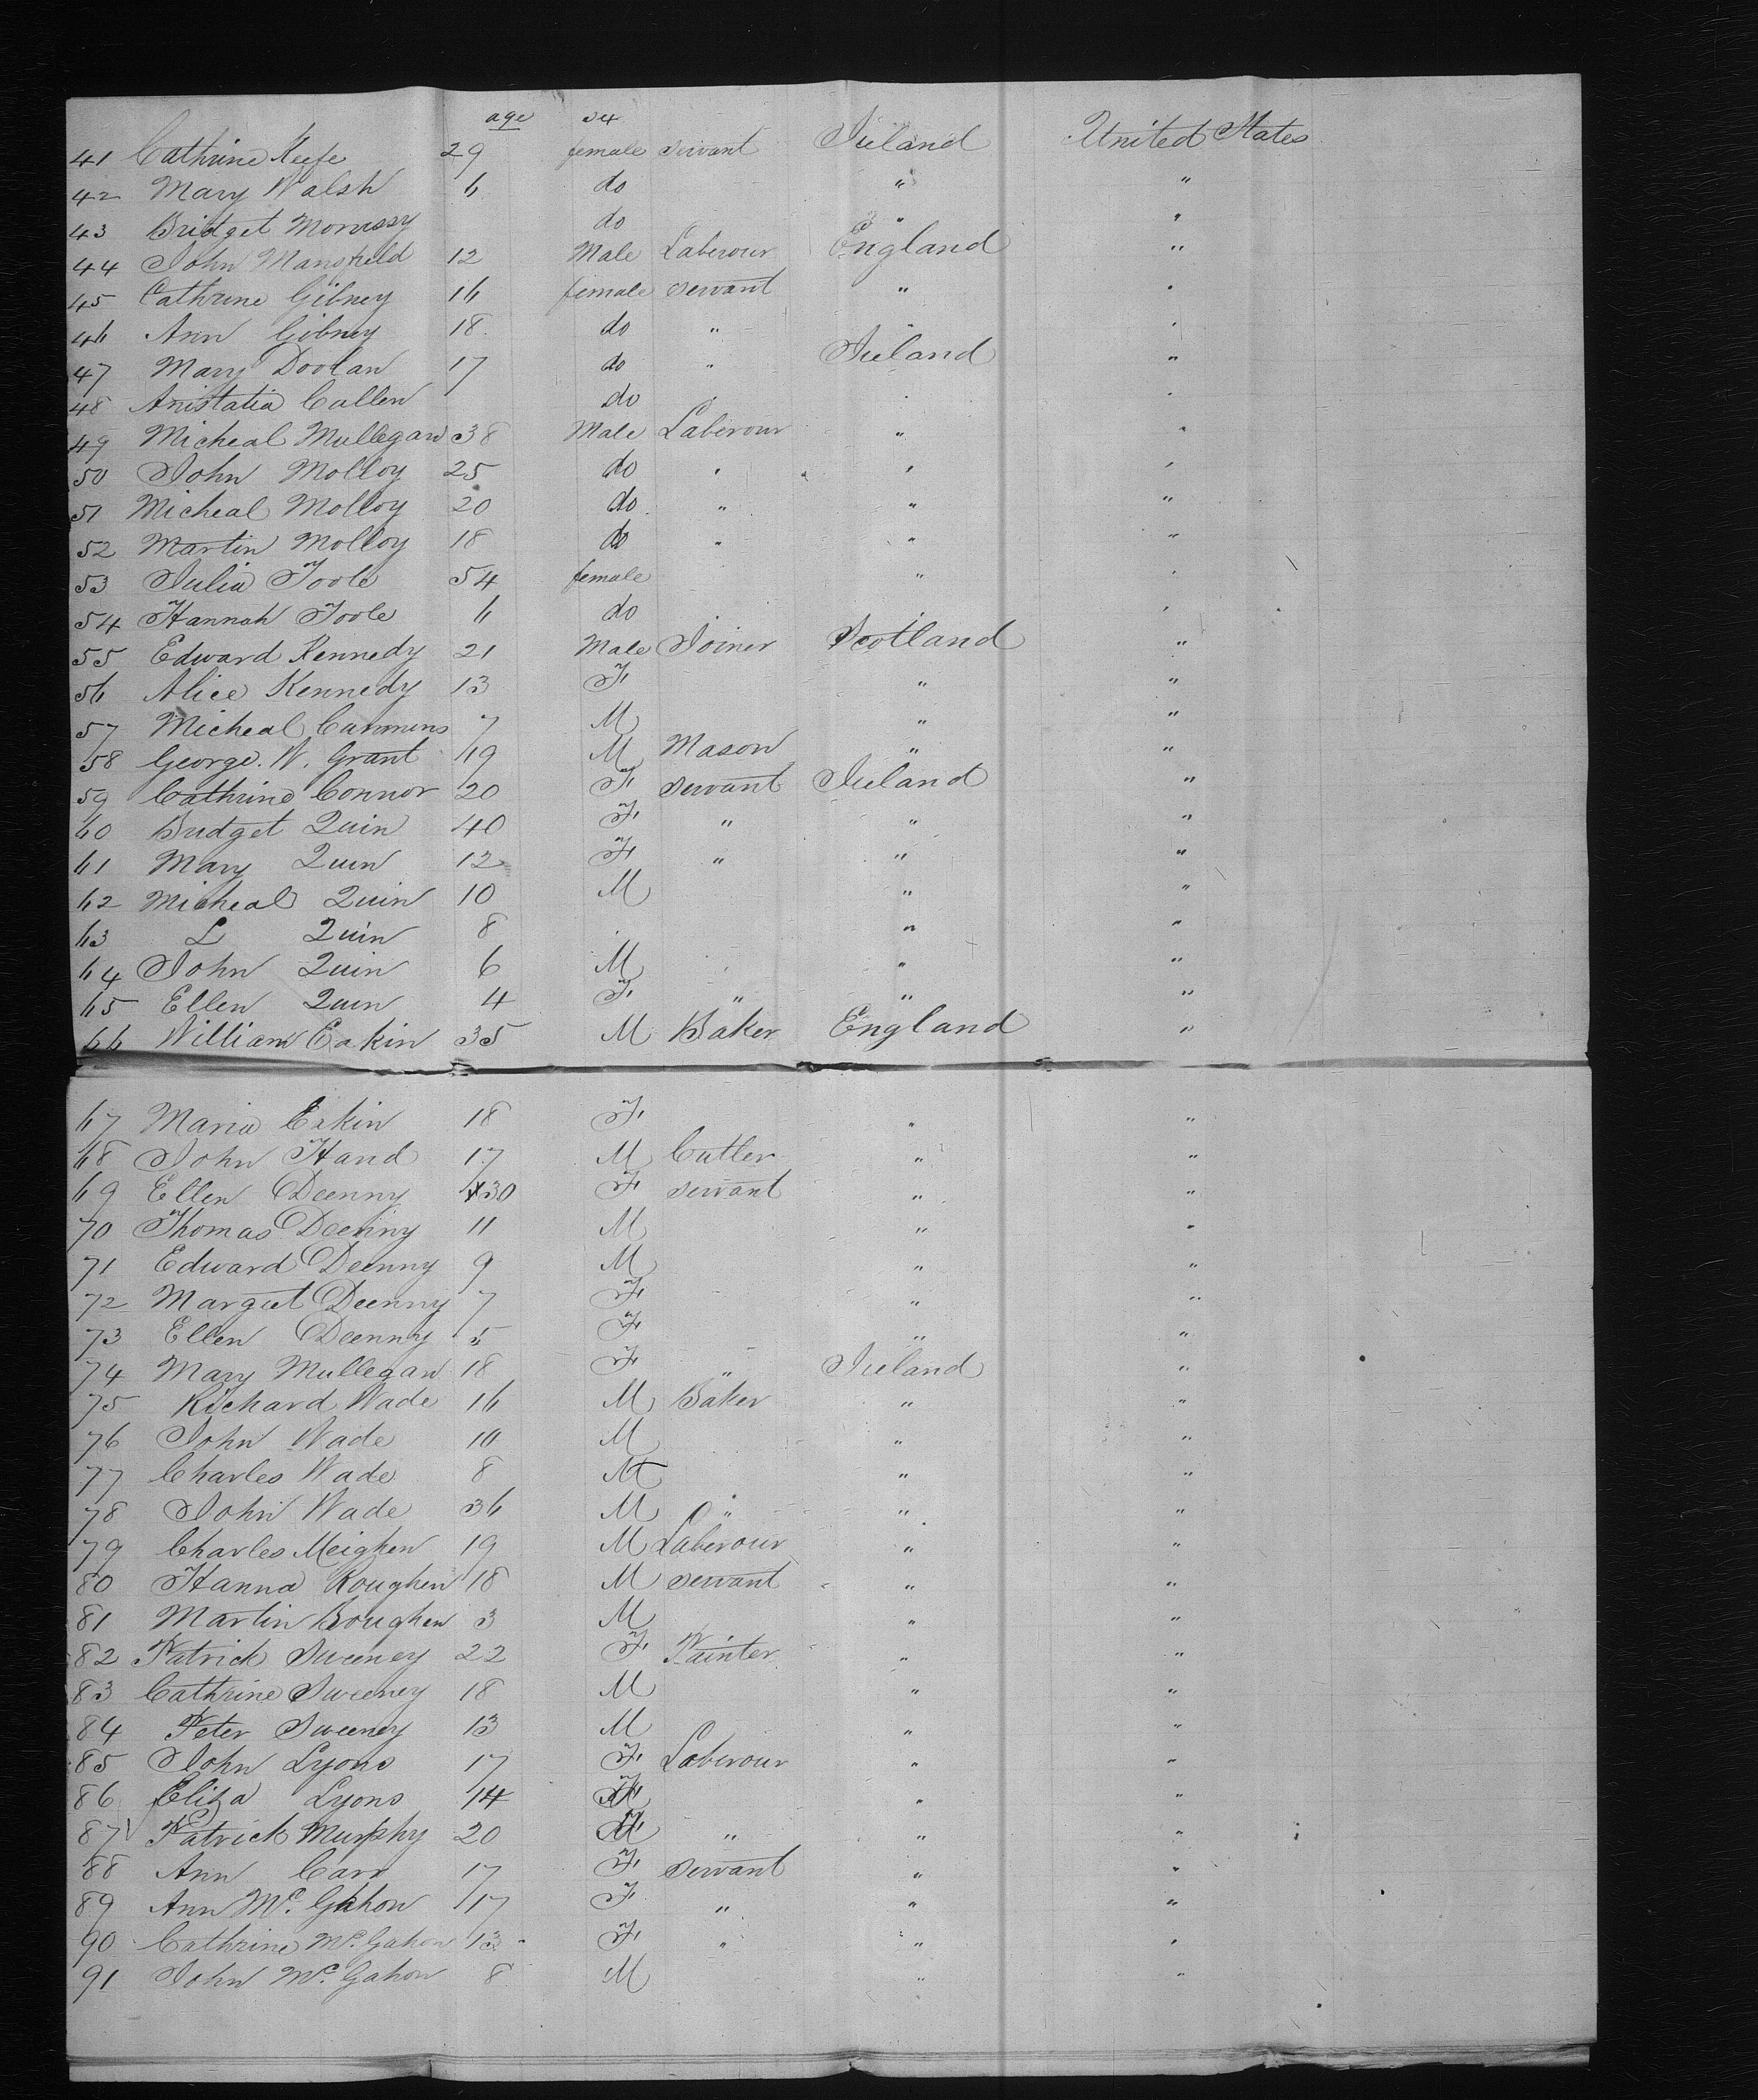 age sex
41 Cathrine Keefe 29 female servant Ireland United States
42 Mary Walsh 6 do " "
43 Bridget Morrissy do " "
44 John Mansfield 12 Male Laberour England "
45 Cathrine Gibney 16 female servant " "
46 Ann Gibney 18 do " " "
47 Mary Doolan 17 do " Ireland "
48 Anistatia Cullen do " " "
49 Micheal Mullegan 38 Male Laberour " "
50 John Molloy 25 do " " "
51 Micheal Molloy 20 do " " "
52 Martin Molloy 18 do " " "
53 Julia Toole 54 female " "
54 Hannah Toole 6 do " "
55 Edward Kennedy 21 Male Joiner Scotland "
56 Alice Kennedy 13 F " "
57 Micheal Cummins 7 M " "
58 George. W. Grant 19 M Mason " "
59 Cathrine Connor 20 F servant Ireland "
60 Bridget Quin 40 F " " "
61 Mary Quin 12 F " " "
62 Micheal Quin 10 M " "
63 L Quin 8 " "
64 John Quin 6 M " "
65 Ellen Quin 4 F " " "
66 William Eakin 35 M Baker England "
67 Maria Eakin 18 F " "
68 John Hand 17 M Cutler " "
69 Ellen Deenny 30 F servant " "
70 Thomas Deenny 11 M " "
71 Edward Deenny 9 M " "
72 Margret Deenny 7 F " "
73 Ellen Deenny 5 F " "
74 Mary Mullegan 18 F " Ireland "
75 Richard Wade 16 M Baker " "
76 John Wade 10 M " "
77 Charles Wade 8 M " "
78 John Wade 36 M " " "
79 Charles Meighen 19 M Laberour " "
80 Hanna Roughen 18 M servant " "
81 Martin Boughen 3 M " "
82 Patrick Sweeney 22 F Painter " "
83 Cathrine Sweeney 18 M " "
84 Peter Sweeney 13 M " "
85 John Lyons 17 F Laberour " "
86 Eliza Lyons 14 " "
87 Patrick Murphy 20 M " " "
88 Ann Carr 17 F servant " "
89 Ann Mc. Gahon 17 F " " "
90 Cathrine Mc. Gahon 13 F " " "
91 John Mc. Gahon 8 M " "